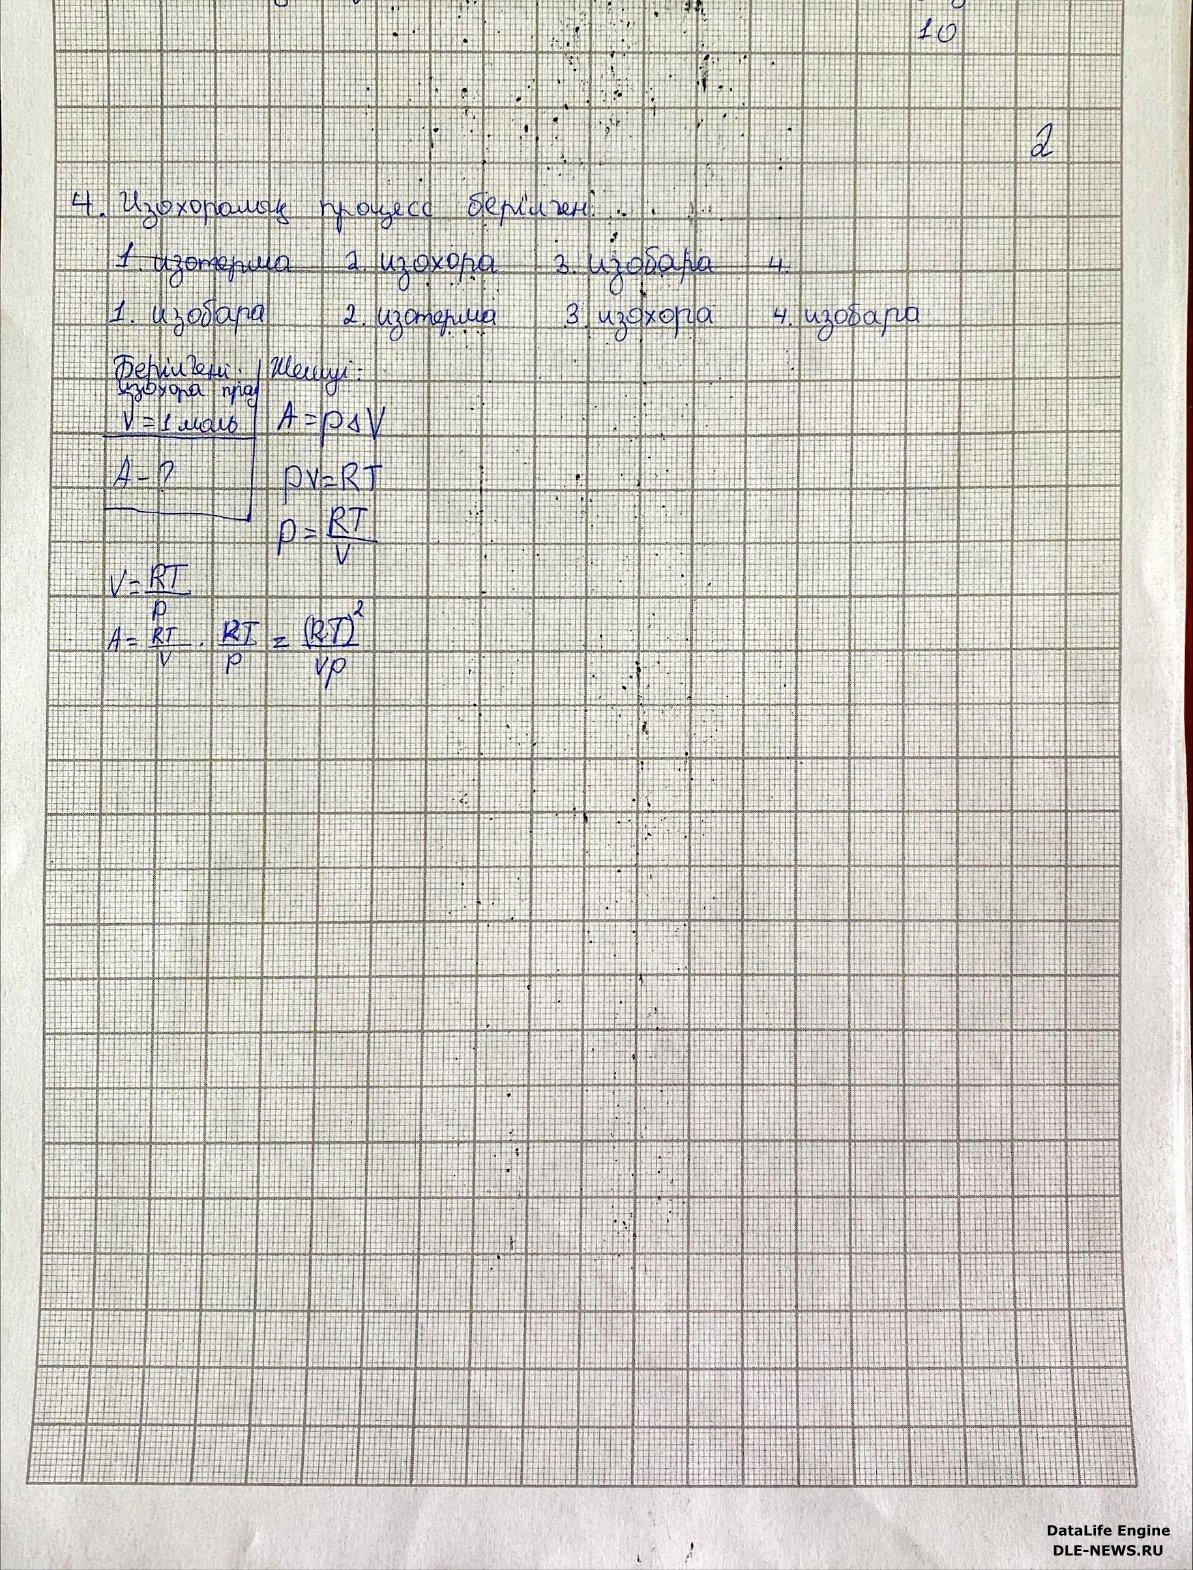 10
2
4. Изохоралық процесс берілген...
1. изотерма 2. изохора 3. изобара 4.
1. изобара 2. изотерма 3. изохора 4. изобара
Берілгені: Шешуі:
изохора
V = 1 моль A = pΔV
A - ? pV = RT
p = RT/V
V = RT/p
A = RT/V · RT/p = (RT)²/Vp
DataLife Engine
DLE-NEWS.RU